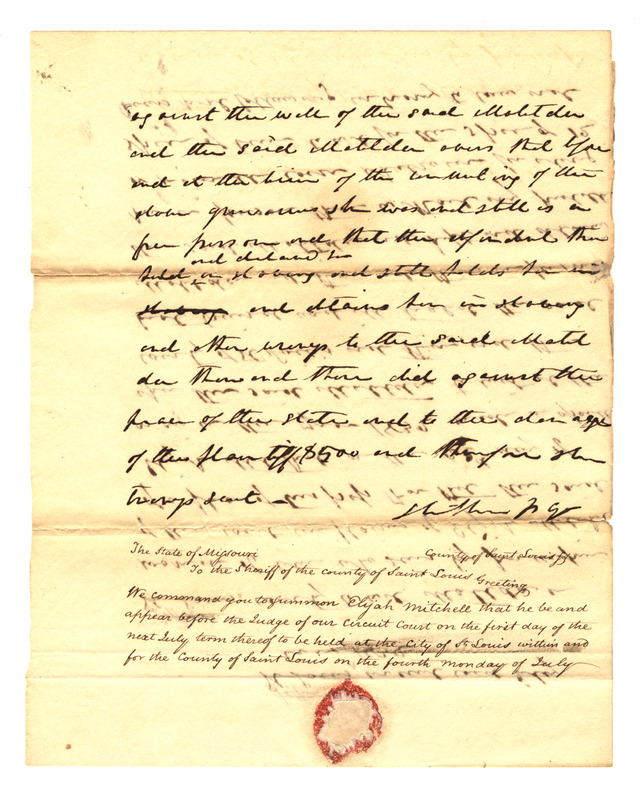 against the will of the said Matilda
and the said Matilda avers that before
and at the time of the committing of the
above grievances she was and still is a
free person and that the defendant then
and detained her
held in slavery and still holds her in
slavery and detains her in slavery
and other wrongs to the said Matil
da then and there did against the
peace of the State and to the damage
of the plaintiff $500 and therefore she
brings suit –
The State of Missouri
County of Saint Louis
To the Sheriff of the county of Saint Louis Greeting
We command you to summon Elijah Mitchell that he be and
appear before the Judge of our circuit Court on the first day of the
next July term thereof to be held at the City of St Louis within and
for the County of Saint Louis on the fourth monday of July